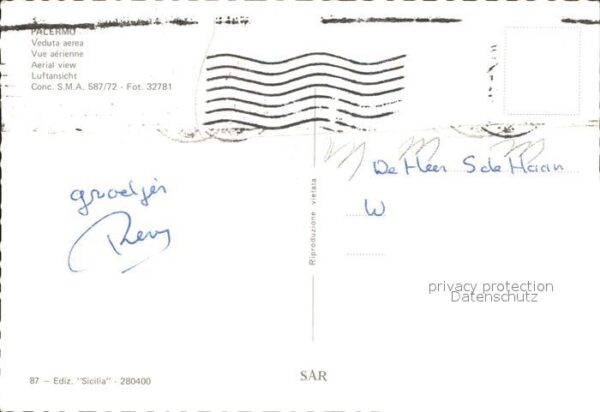 PALERMO
Veduta aerea
Vue aérienne
Aerial view
Luftansicht
Conc. S.M.A. 587/72 - Fot. 32781
groetjes
Riproduzione vietata
De Heer S de Haan
W
privacy protection
Datenschutz
87 — Ediz. "Sicilia" - 280400
SAR